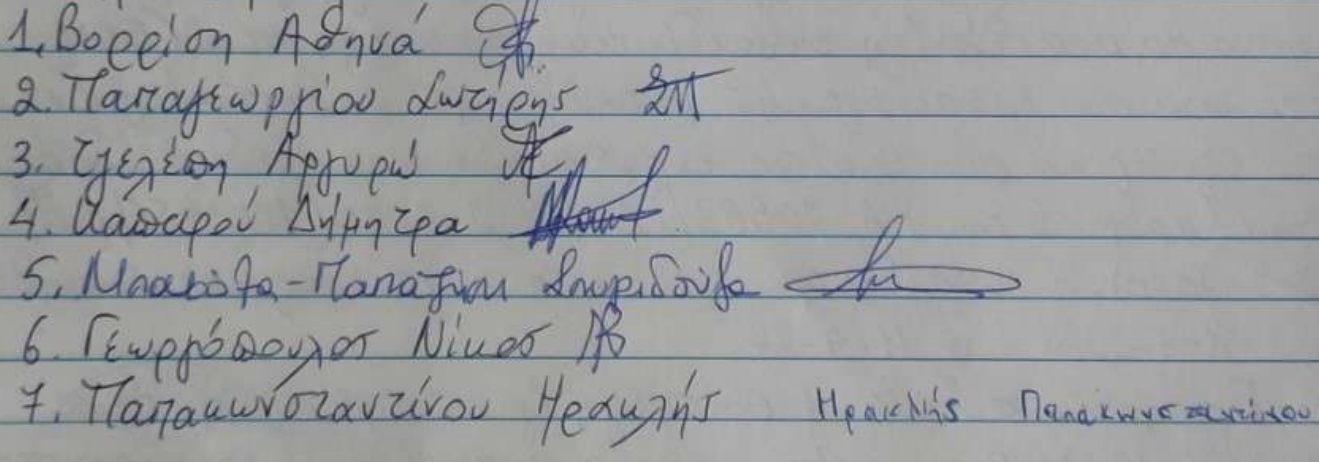 1. Βορρίση Αθηνά
2. Παπαγεωργίου Σωτήρης ΣΠ
3. Τζελέπη Αργυρώ
4. Δήμητρα
5. Σπυριδούλα
6. Γεωργόπουλος Νίκος
7. Παπακωνσταντίνου Ηρακλής Ηρακλής Παπακωνσταντίνου